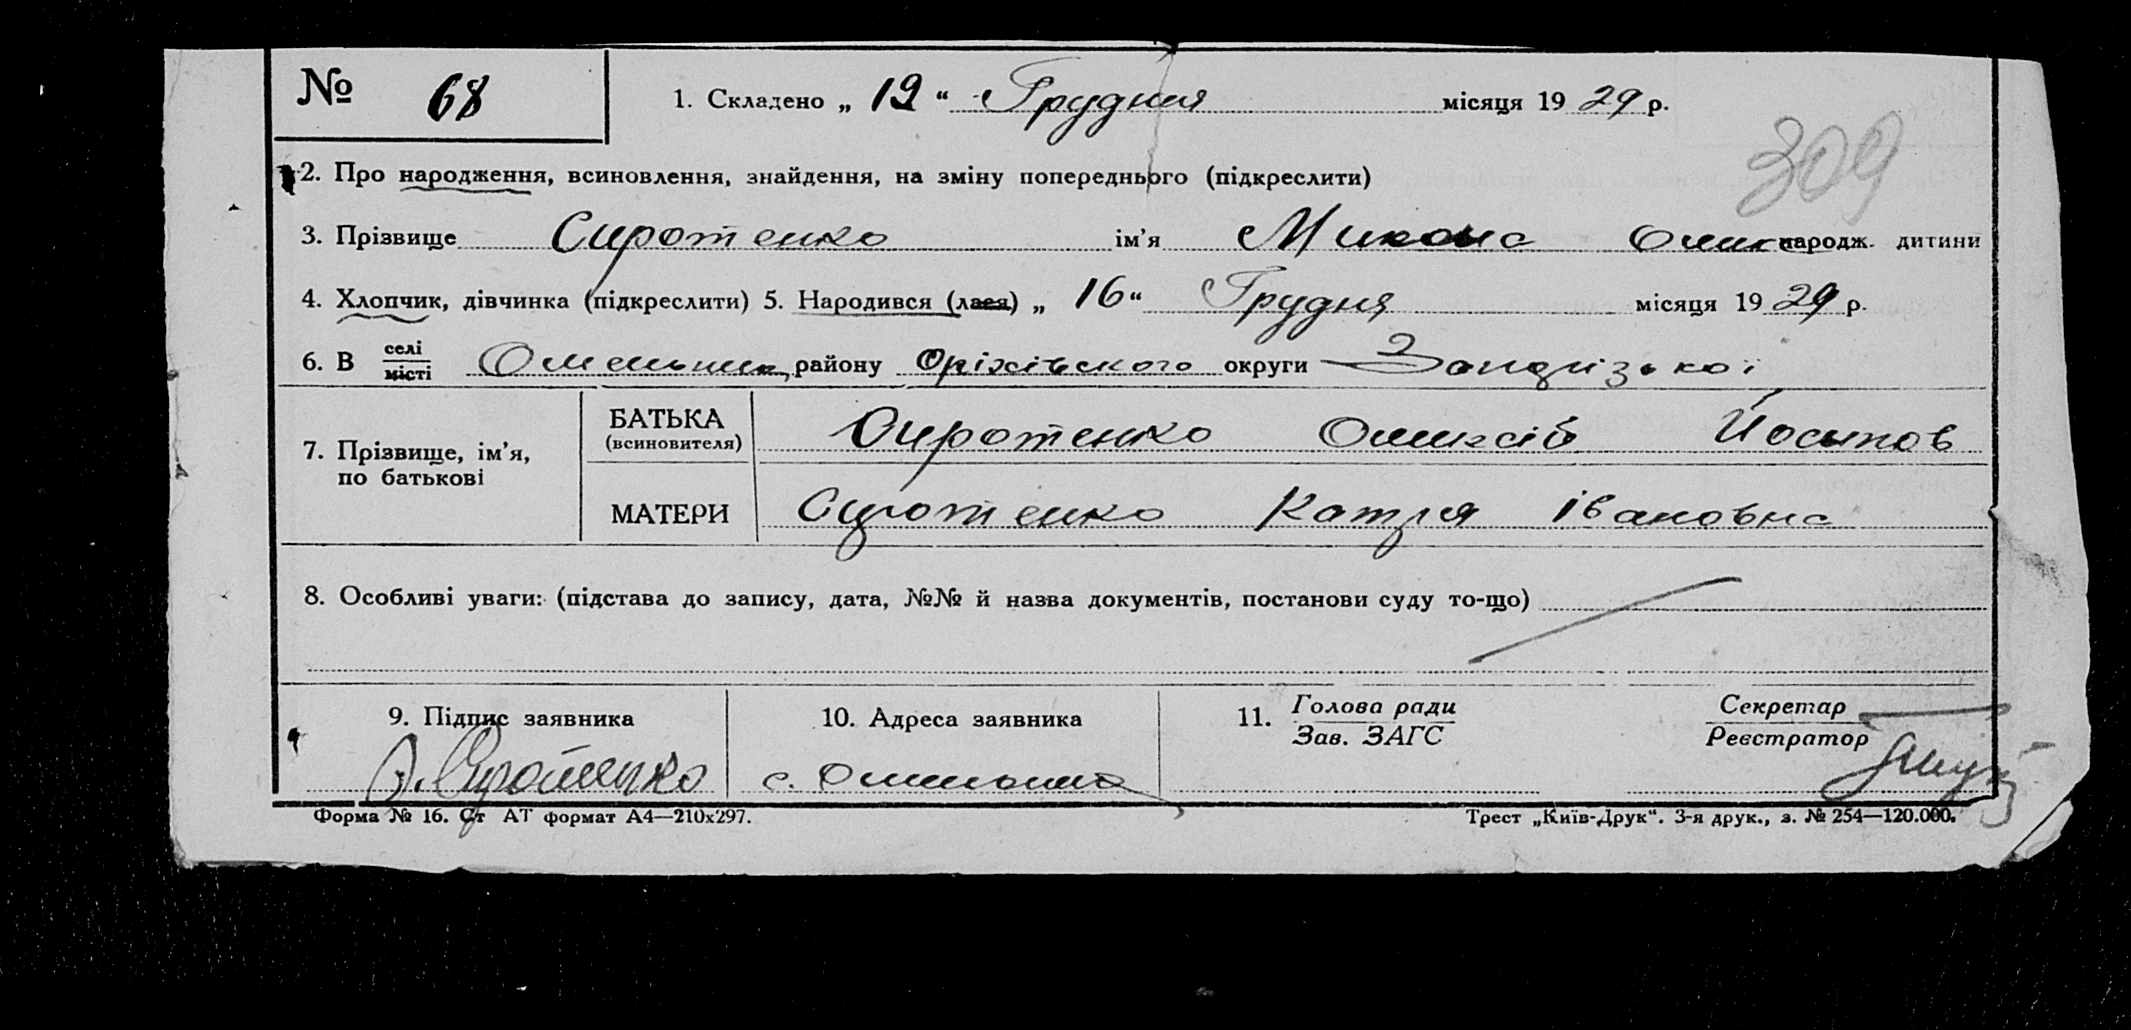 № 68 1. Складено „ 19 “ Грудня місяця 19 29 р.
309
2. Про народження, всиновлення, знайдення, на зміну попереднього (підкреслити)
3. Прізвище Сиротенко ім’я Микола народж. дитини
4. Хлопчик, дівчинка (підкреслити) 5. Народився (лася) „ 16 “ Грудня місяця 19 29 р.
6. В селі місті Омельник району Оріхівського округи Запорізької
7. Прізвище, ім’я, по батькові
БАТЬКА (всиновителя) Сиротенко Олексій Йосипов
МАТЕРИ Сиротенко Катря Івановна
8. Особливі уваги: (підстава до запису, дата, №№ й назва документів, постанови суду то-що)
9. Підпис заявника 10. Адреса заявника 11. Голова ради Секретар
Зав. ЗАГС Реєстратор
Сиротенко с. Омельник
Форма № 16. Ст АТ формат А4—210х297. Трест „Київ-Друк“. 3-я друк., з. № 254—120.000.